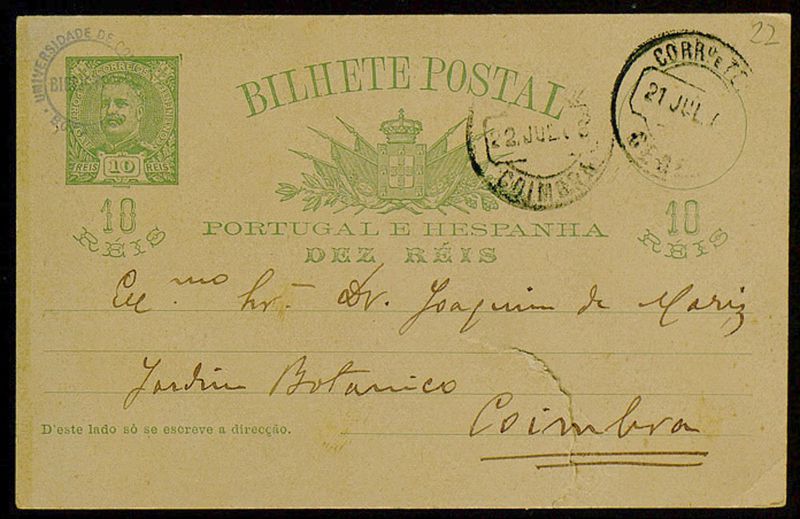 22
UNIVERSIDADE DE CO
CORREIOS
10
REIS REIS
BILHETE POSTAL
CORR.º E TE
21 JUL.
22. JUL.
COIMBRA
PORTUGAL E HESPANHA
DEZ RÉIS
10
RÉIS
10
RÉIS
Ex.mo Snr. Dr. Joaquim de Mariz
Jardim Botanico
Coimbra
D'este lado só se escreve a direcção.